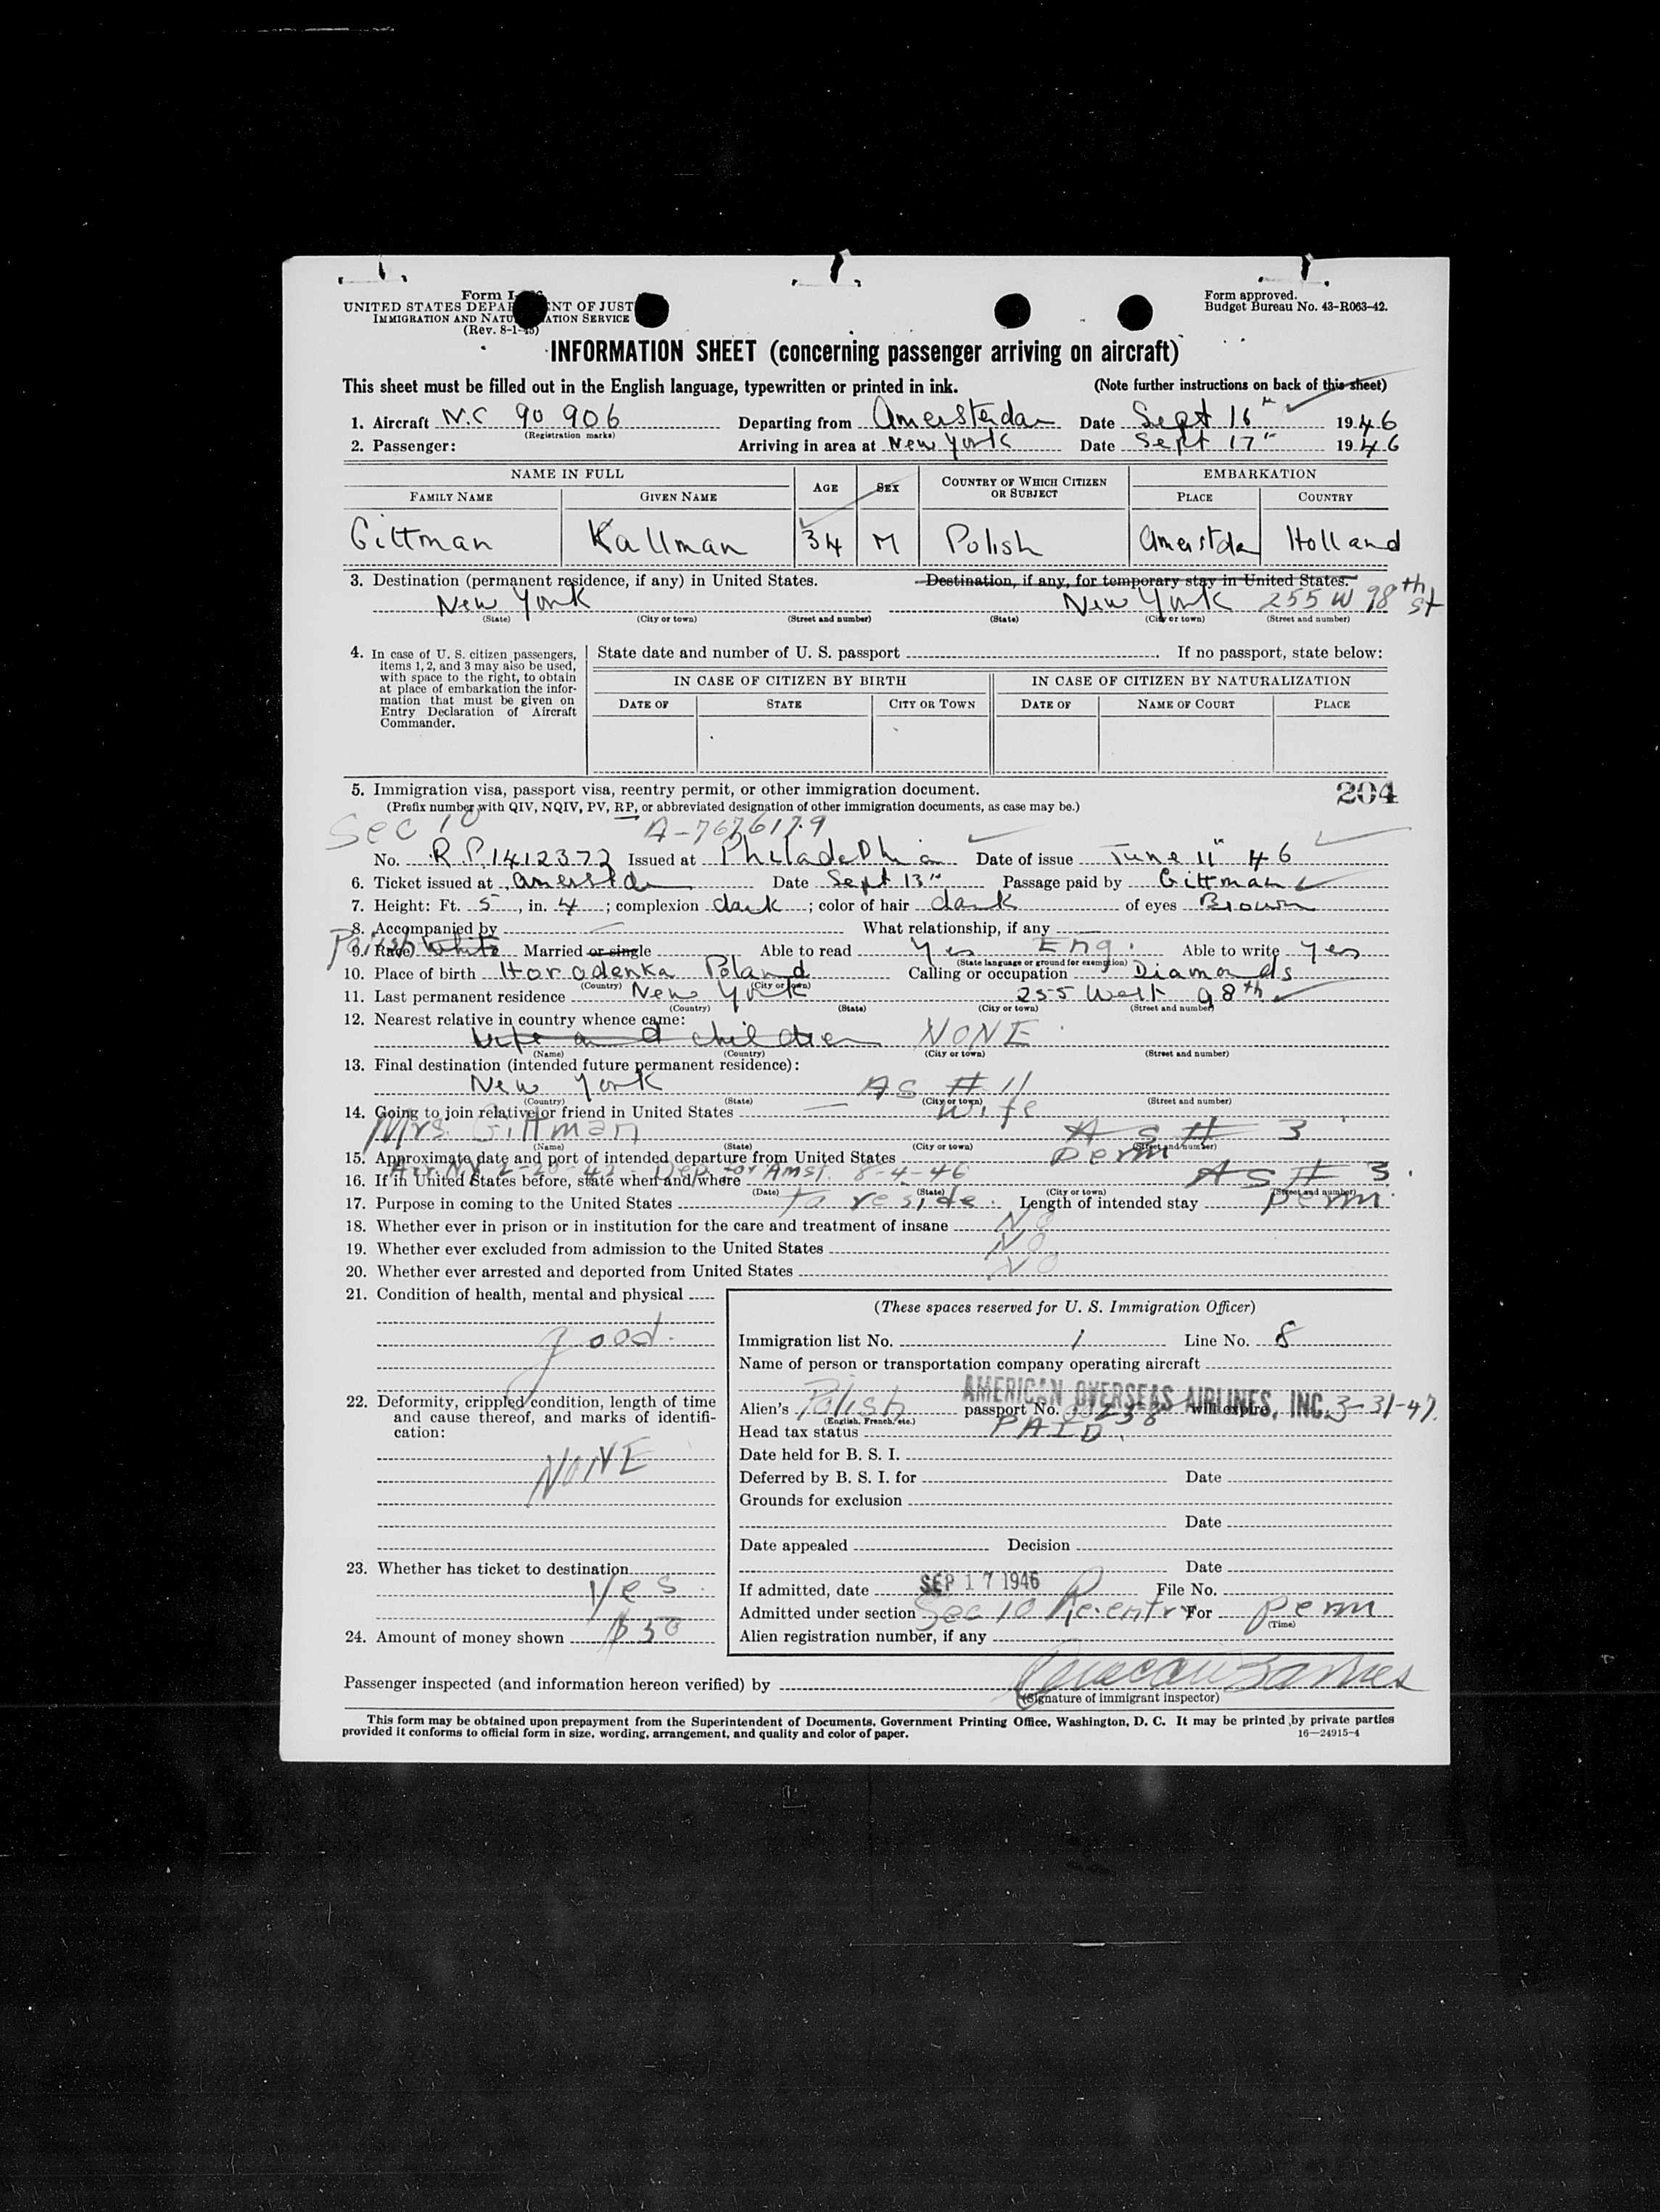 Form I-
UNITED STATES DEPAR NT OF JUST
IMMIGRATION AND NATU ATION SERVICE
(Rev. 8-1-45)
Form approved.
Budget Bureau No. 43-R063-42.
INFORMATION SHEET (concerning passenger arriving on aircraft)
This sheet must be filled out in the English language, typewritten or printed in ink. (Note further instructions on back of this sheet)
1. Aircraft N.C 90 906 Departing from Amersterdam Date Sept 16th 1946
(Registration marks)
2. Passenger: Arriving in area at New York Date Sept 17th 1946
NAME IN FULL AGE SEX COUNTRY OF WHICH CITIZEN OR SUBJECT EMBARKATION
FAMILY NAME GIVEN NAME PLACE COUNTRY
Gittman Kallman 34 M Polish Holland
3. Destination (permanent residence, if any) in United States. Destination, if any, for temporary stay in United States.
New York New York 255 W 98th St
(State) (City or town) (Street and number) (State) (City or town) (Street and number)
4. In case of U. S. citizen passengers, items 1, 2, and 3 may also be used, with space to the right, to obtain at place of embarkation the information that must be given on Entry Declaration of Aircraft Commander.
State date and number of U. S. passport If no passport, state below:
IN CASE OF CITIZEN BY BIRTH IN CASE OF CITIZEN BY NATURALIZATION
DATE OF STATE CITY OR TOWN DATE OF NAME OF COURT PLACE
5. Immigration visa, passport visa, reentry permit, or other immigration document. 204
(Prefix number with QIV, NQIV, PV, RP, or abbreviated designation of other immigration documents, as case may be.)
Sec 10 A-7676179
No. R.P. 1412373 Issued at Philadelphia Date of issue June 11th 46
6. Ticket issued at Date Sept 13th Passage paid by Gittman
7. Height: Ft. 5, in. 4; complexion dark; color of hair dark of eyes Brown
8. Accompanied by What relationship, if any
9. Race Polish White Married or single Able to read Yes Eng. Able to write Yes
(State language or ground for exemption)
10. Place of birth Horodenka Poland Calling or occupation Diamonds
(Country) (City or town)
11. Last permanent residence New York 255 West 98th
(Country) (State) (City or town) (Street and number)
12. Nearest relative in country whence came:
wife and children NONE
(Name) (Country) (City or town) (Street and number)
13. Final destination (intended future permanent residence):
New York AS # 11
(Country) (State) (City or town) (Street and number)
14. Going to join relative or friend in United States Wife
Mrs. Gittman AS # 3
(Name) (State) (City or town) (Street and number)
15. Approximate date and port of intended departure from United States Perm
Arr. N.Y. 2-20-42 Dep. for Amst. 8-4-46 AS # 3.
16. If in United States before, state when and where
(Date) (State) (City or town) (Street and number)
17. Purpose in coming to the United States to reside. Length of intended stay perm.
18. Whether ever in prison or in institution for the care and treatment of insane No
19. Whether ever excluded from admission to the United States No
20. Whether ever arrested and deported from United States No
21. Condition of health, mental and physical
good.
22. Deformity, crippled condition, length of time and cause thereof, and marks of identification:
NONE
23. Whether has ticket to destination
Yes
24. Amount of money shown $50
(These spaces reserved for U. S. Immigration Officer)
Immigration list No. 1 Line No. 8
Name of person or transportation company operating aircraft
AMERICAN OVERSEAS AIRLINES, INC.
Alien's Polish passport No. will expire 3-31-47.
(English, French, etc.)
Head tax status PAID.
Date held for B. S. I.
Deferred by B. S. I. for Date
Grounds for exclusion
Date
Date appealed Decision
Date
If admitted, date SEP 17 1946 File No.
Admitted under section Sec 10 Re-entry For perm
(Time)
Alien registration number, if any
Passenger inspected (and information hereon verified) by
(Signature of immigrant inspector)
This form may be obtained upon prepayment from the Superintendent of Documents, Government Printing Office, Washington, D. C. It may be printed by private parties
provided it conforms to official form in size, wording, arrangement, and quality and color of paper. 16—24915-4